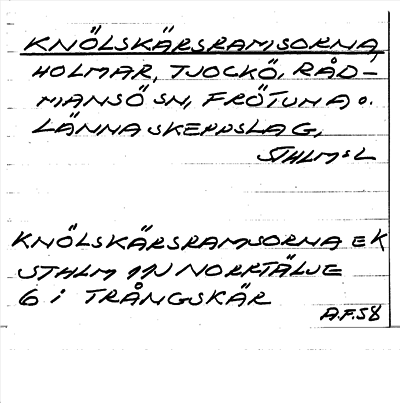 KNÖLSKÄRSRAMSORNA,
HOLMAR, TJOCKÖ, RÅD-
MANSÖ SN, FRÖTUNA O.
LÄNNA SKEPPSLAG,
STHLMS L
KNÖLSKÄRSRAMSORNA EK
STHLM 1N NORRTÄLJE
6 i TRÅNGSKÄR
A.F.58